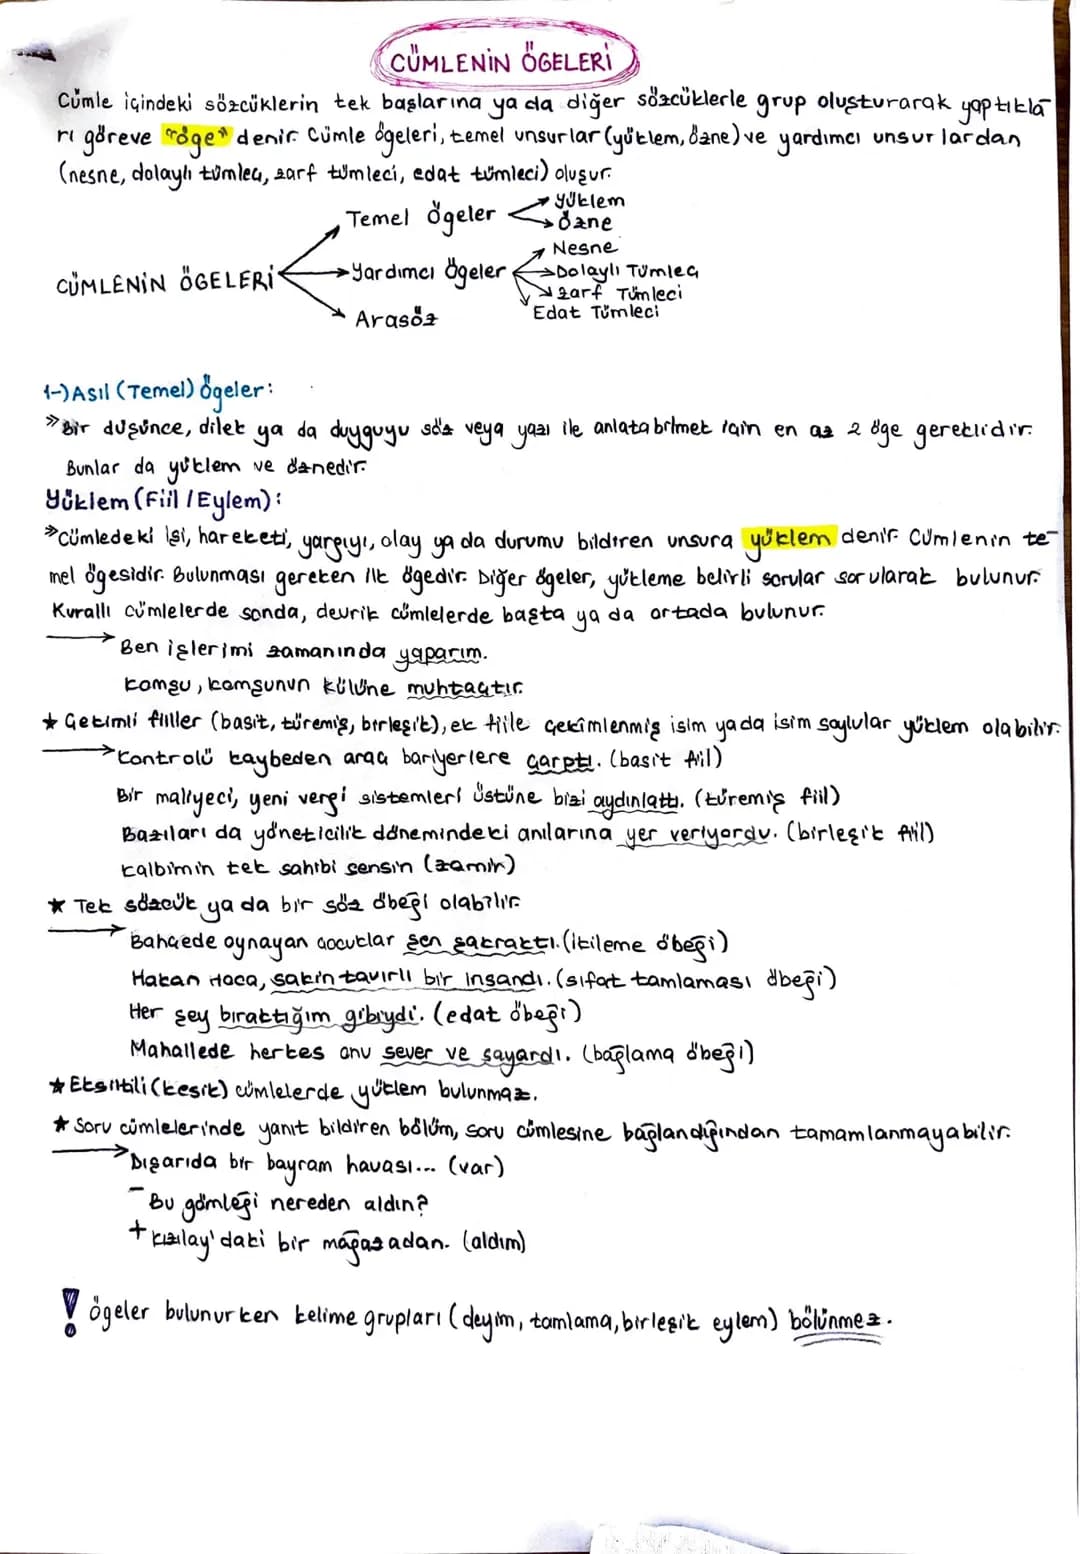 CÜMLENİN ÖGELERİ
Cümle içindeki sözcüklerin tek başlarına ya da diğer sözcüklerle grup oluşturarak yaptıkla
rı göreve "öge" denir. Cümle ögeleri, temel unsurlar (yüklem, özne) ve yardımcı unsurlardan
(nesne, dolaylı tümleç, zarf tümleci, edat tümleci) oluşur.
CÜMLENİN ÖGELERİ
Temel Ögeler
Yüklem
Özne
Yardımcı Ögeler
Nesne
Dolaylı Tümleç
Zarf Tümleci
Edat Tümleci
Arasöz
1-) Asıl (Temel) Ögeler:
» Bir düşünce, dilek ya da duyguyu söz veya yazı ile anlatabilmek için en az 2 öge gereklidir.
Bunlar da yüklem ve öznedir.
Yüklem (Fiil / Eylem):
» Cümledeki işi, hareketi, yargıyı, olay ya da durumu bildiren unsura yüklem denir. Cümlenin te-
mel ögesidir. Bulunması gereken ilk ögedir. Diğer ögeler, yükleme belirli sorular sorularak bulunur.
Kurallı cümlelerde sonda, devrik cümlelerde başta ya da ortada bulunur.
→ Ben işlerimi zamanında yaparım.
Komşu, komşunun külüne muhtaçtır.
★ Çekimli fiiller (basit, türemiş, birleşik), ek fiile çekimlenmiş isim ya da isim soylular yüklem olabilir.
→ Kontrolü kaybeden araç bariyerlere çarptı. (basit fiil)
Bir maliyeci, yeni vergi sistemleri üstüne bizi aydınlattı. (türemiş fiil)
Bazıları da yöneticilik dönemindeki anılarına yer veriyordu. (birleşik fiil)
Kalbimin tek sahibi sensin (zamir)
★ Tek sözcük ya da bir söz öbeği olabilir.
→ Bahçede oynayan çocuklar şen şakraktı. (ikileme öbeği)
Hakan Hoca, sakin tavırlı bir insandı. (sıfat tamlaması öbeği)
Her şey bıraktığım gibiydi. (edat öbeği)
Mahallede herkes onu sever ve sayardı. (bağlama öbeği)
★ Eksiltili (kesik) cümlelerde yüklem bulunmaz.
★ Soru cümlelerinde yanıt bildiren bölüm, soru cümlesine bağlandığından tamamlanmayabilir.
→ Dışarıda bir bayram havası... (var)
- Bu gömleği nereden aldın?
+ Kızılay'daki bir mağazadan. (aldım)
! Ögeler bulunurken kelime grupları (deyim, tamlama, birleşik eylem) bölünmez.